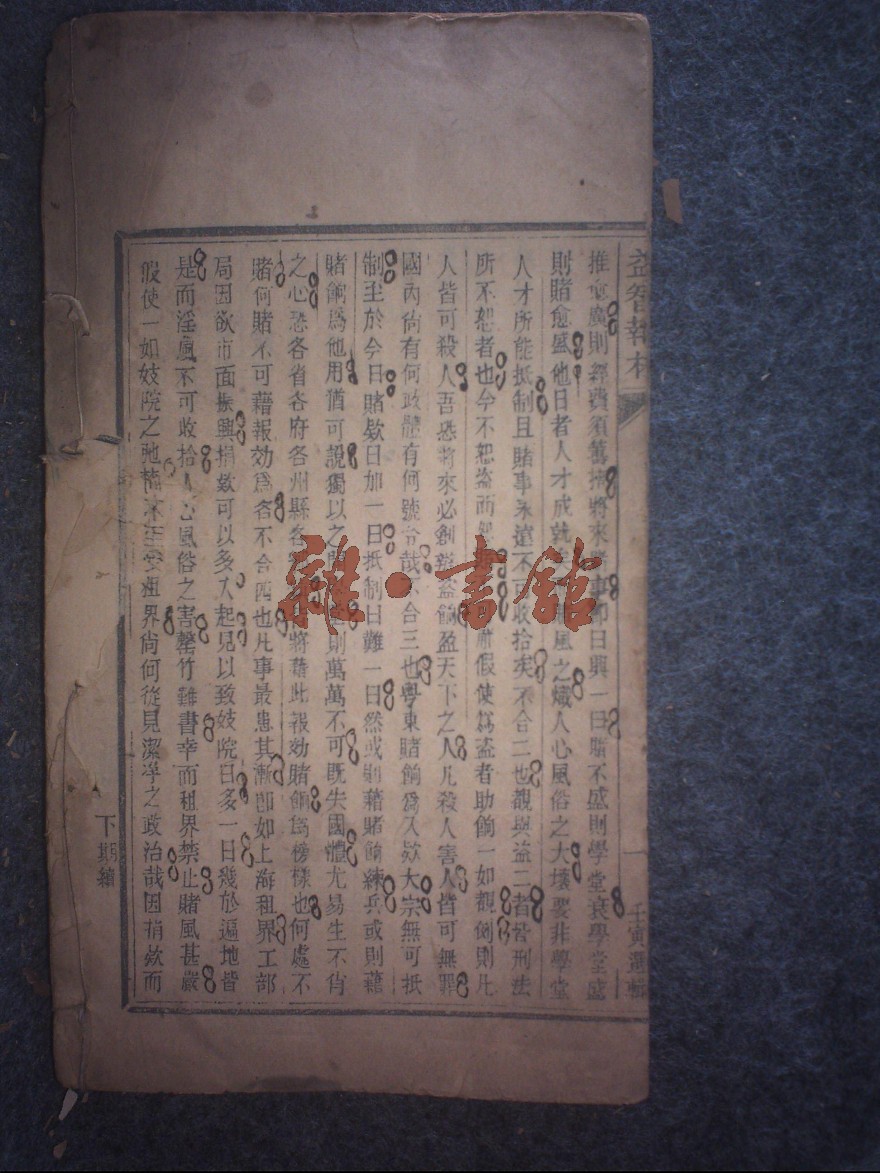 益智報本
一
壬寅選輯
推愈廣則經費須籌措將來賭事卽日興一日賭不盛則學堂衰學堂盛
則賭愈盛他日者人才成就風之熾人心風俗之大壞要非學堂
人才所能抵制且賭事永遠不可收拾矣不合二也賭與盜二者皆刑法
所不恕者也今不恕盜而假使爲盜者助餉一如賭例則凡
人皆可殺人吾恐將來必創盜餉盈天下之人凡殺人害人皆可無罪
國內尙有何政體有何號令哉不合三也粵東賭餉爲入款大宗無可抵
制至於今日賭款日加一日抵制日難一日然或則藉賭餉練兵或則藉
賭餉爲他用猶可說獨以之則萬萬不可旣失國體尤易生不肖
之心恐各省各府各州縣各將藉此報効賭餉爲榜樣也何處不
賭何賭不可藉報効爲名不合四也凡事最患其漸卽如上海租界工部
局因欲市面振興捐款可以多入起見以致妓院日多一日幾於遍地皆
是而淫風不可收拾人心風俗之害罄竹難書幸而租界禁止賭風甚嚴
假使一如妓院之弛禁租界尙何從見潔淨之政治哉因捐款而
下期續
雜·書館